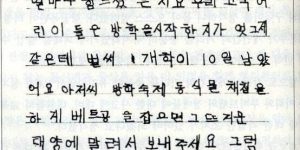 린이 들은 방학을 시작한지가 엇그제
같은데 벌써 개학이 10일 남았
어요 아저씨 방학숙제 동식물 채집을
하게 베트콩을 잡으면 그 뜨거운
태양에 말려서 보내주세요 그럼